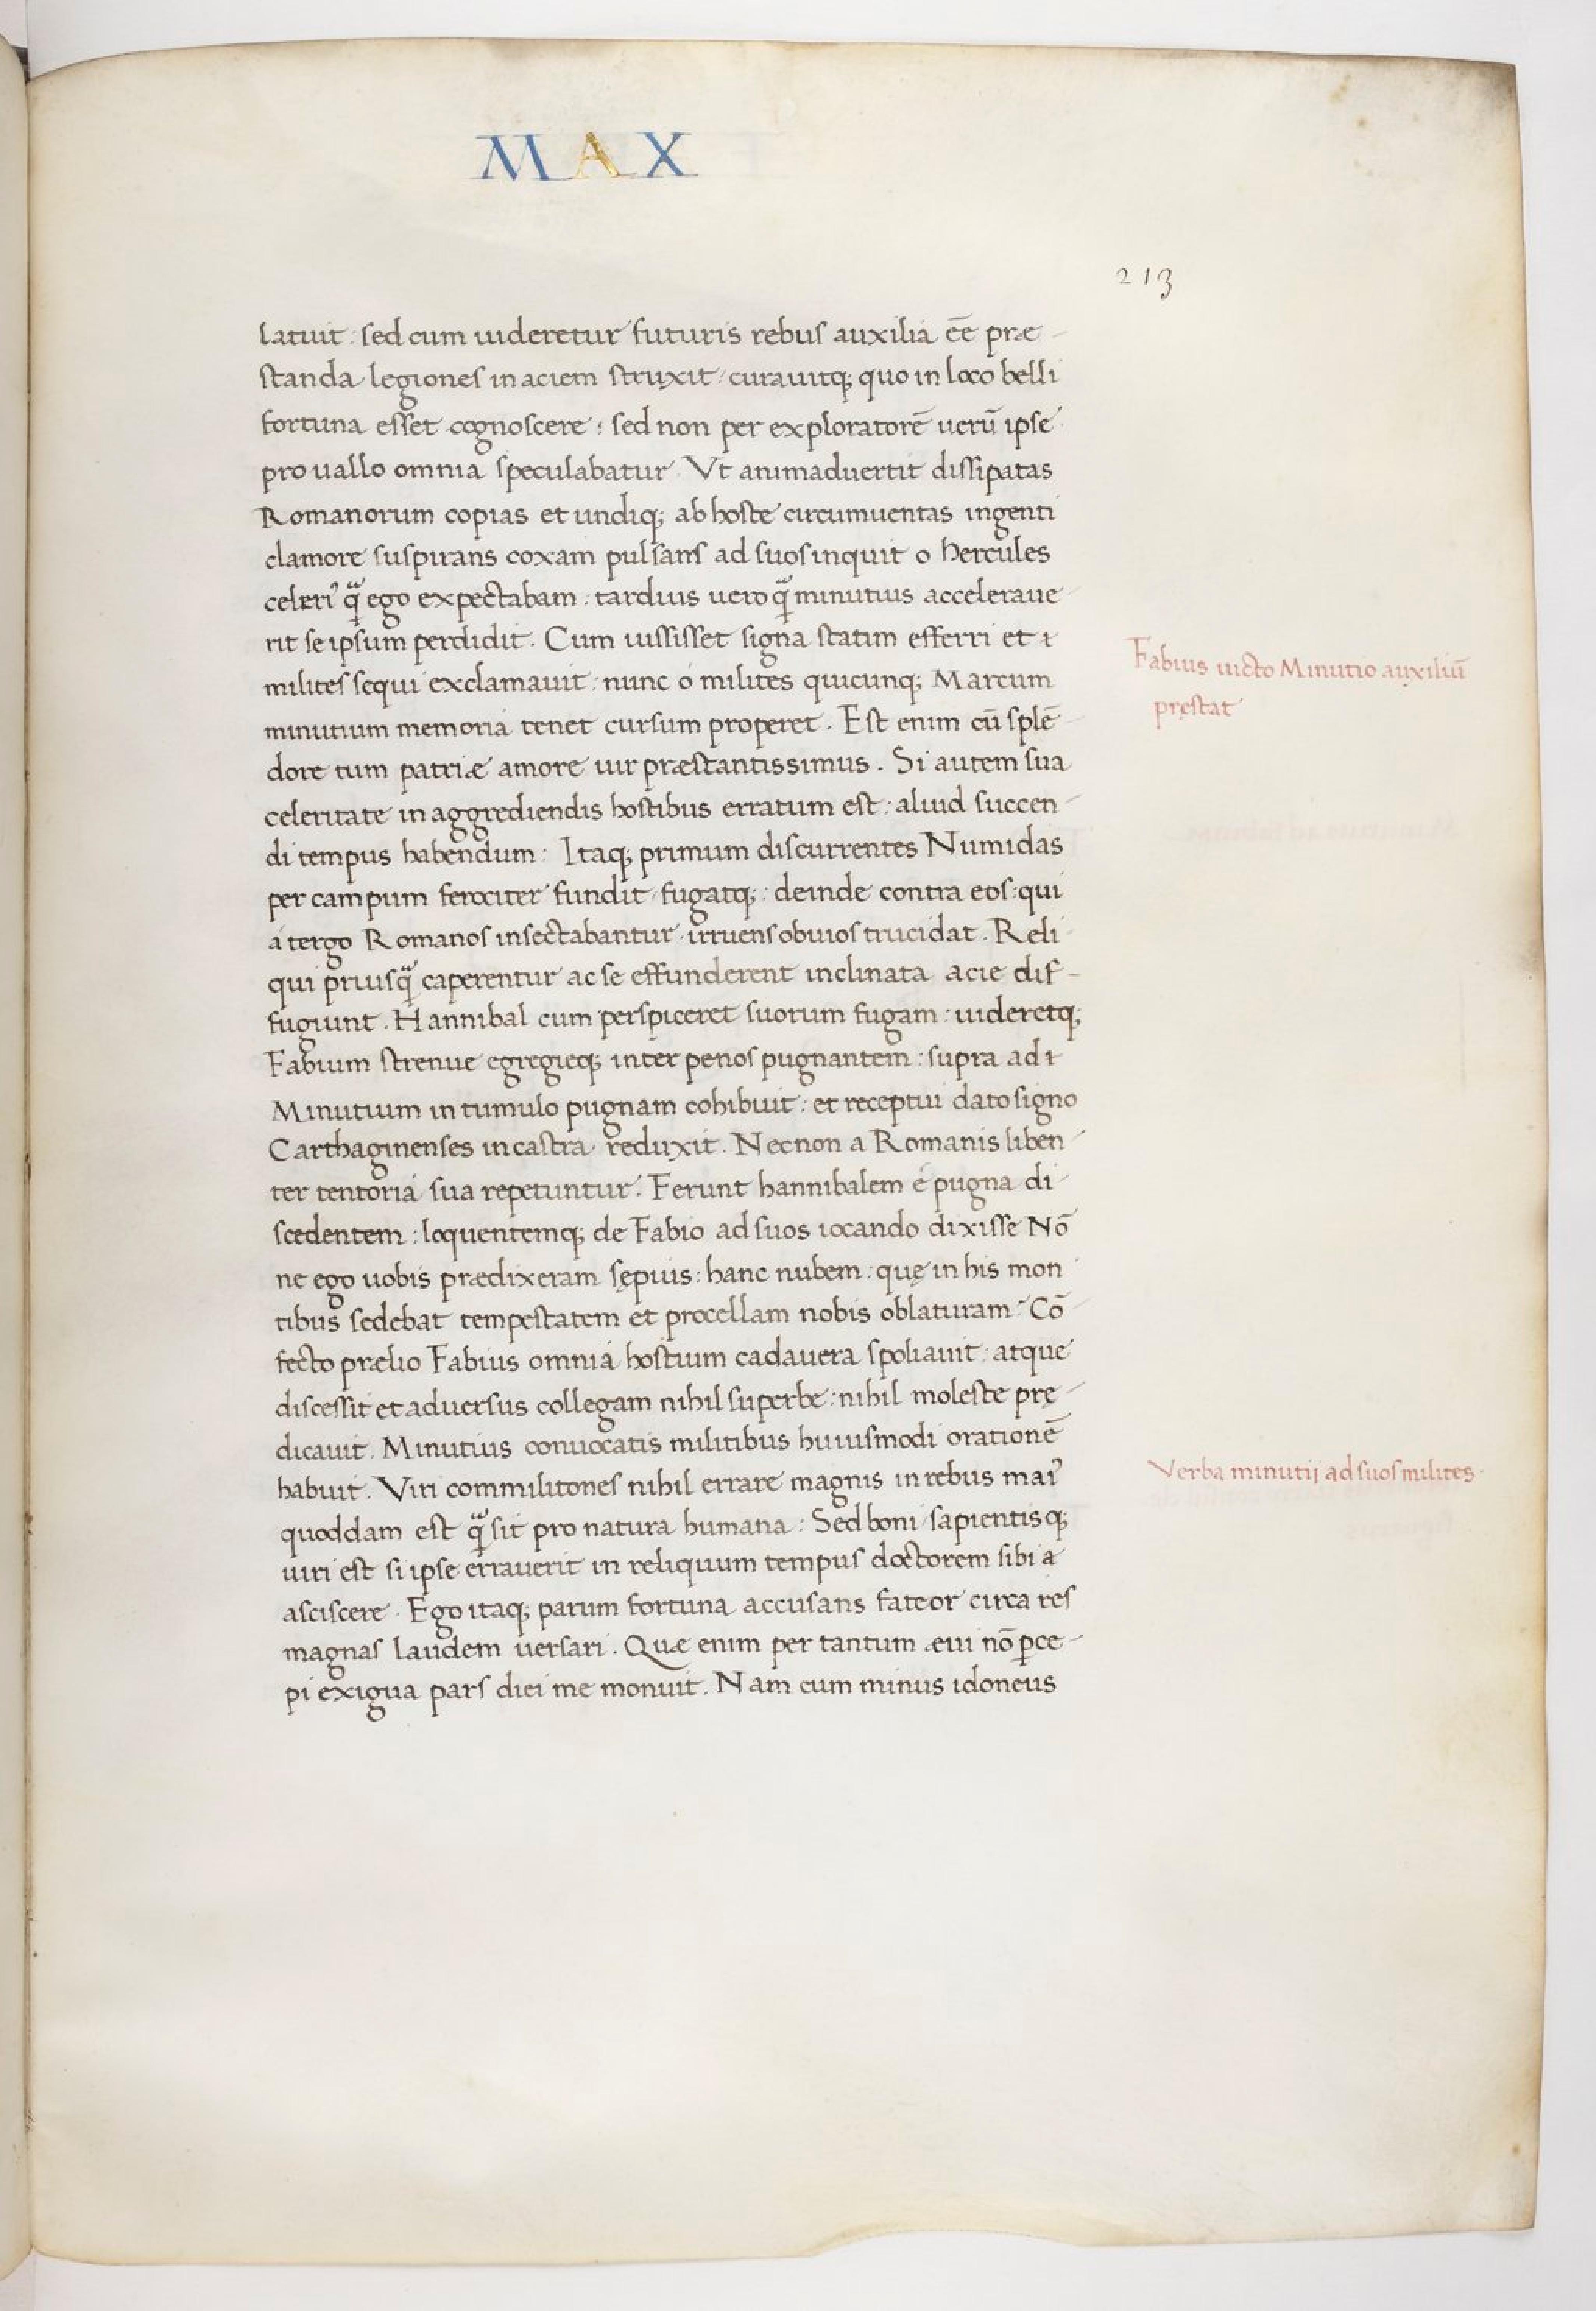 MAX
213
latuit: sed cum uideretur futuris rebus auxilia eē præ-
standa legiones in aciem struxit: curauitq; quo in loco belli
fortuna esset cognoscere: sed non per exploratorē uerū ipse
pro uallo omnia speculabatur. Vt animaduertit dissipatas
Romanorum copias et undiq; ab hoste circumuentas ingenti
clamore suspirans coxam pulsans ad suos inquit o hercules
celeri᾽ q̃ ego expectabam: tardius uero q̃ minutius acceleraue-
rit se ipsum perdidit. Cum iussisset signa statim efferri et ꝛ
milites sequi exclamauit: nunc ó milites quicunq; Marcum
minutium memoria tenet cursum properet. Est enim cū splē-
dore tum patriæ amore uir præstantissimus. Si autem sua
celeritate in aggrediendis hostibus erratum est: aliud succen-
di tempus habendum: Itaq; primum discurrentes Numidas
per campum ferociter fundit fugatq;: deinde contra eos: qui
á tergo Romanos insectabantur irruens obuios trucidat. Reli-
qui priusq̃ caperentur ac se effunderent inclinata acie dif-
fugiunt. Hannibal cum perspiceret suorum fugam: uideretq;
Fabium strenue egregieq; inter penos pugnantem: supra ad ꝛ
Minutium in tumulo pugnam cohibuit: et receptui dato signo
Carthaginenses in castra reduxit. Necnon a Romanis liben-
ter tentoria sua repetuntur. Ferunt hannibalem é pugna di-
scedentem: loquentemq; de Fabio ad suos iocando dixisse Nō
ne ego uobis prædixeram sępius: hanc nubem: quę in his mon
tibus sedebat tempestatem et procellam nobis oblaturam? Cō-
fecto prælio Fabius omnia hostium cadauera spoliauit: atque
discessit et aduersus collegam nihil superbe: nihil moleste prę-
dicauit. Minutius conuocatis militibus huiusmodi orationē
habuit. Viri commilitones nihil errare magnis in rebus mai᾽
quoddam est q̃ sit pro natura humana: Sed boni sapientisq;
uiri est si ipse errauerit in reliquum tempus doctorem sibi a
asciscere. Ego itaq; parum fortuna accusans fateor circa res
magnas laudem uersari. Quæ enim per tantum æui nō ꝑce-
pi exigua pars diei me monuit. Nam cum minus idoneus
Fabius uicto Minutio auxiliū
pręstat
Verba minutij ad suos milites